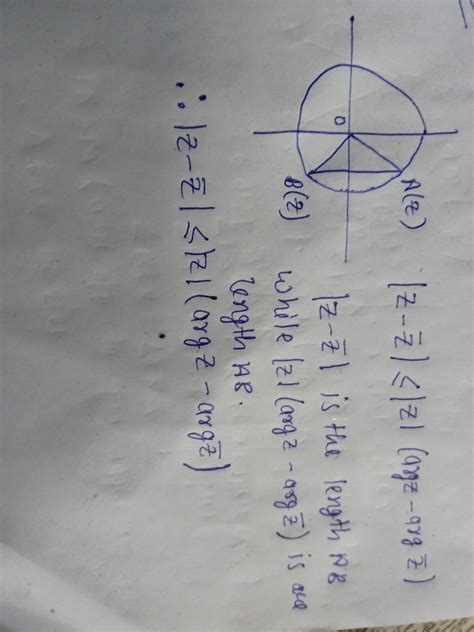 A(z)
O
B(z̄)
|z - z̄| ≤ |z| (arg z - arg z̄)
|z - z̄| is the length AB
while |z| (arg z - arg z̄) is arc
length AB.
∴ |z - z̄| ≤ |z| (arg z - arg z̄)